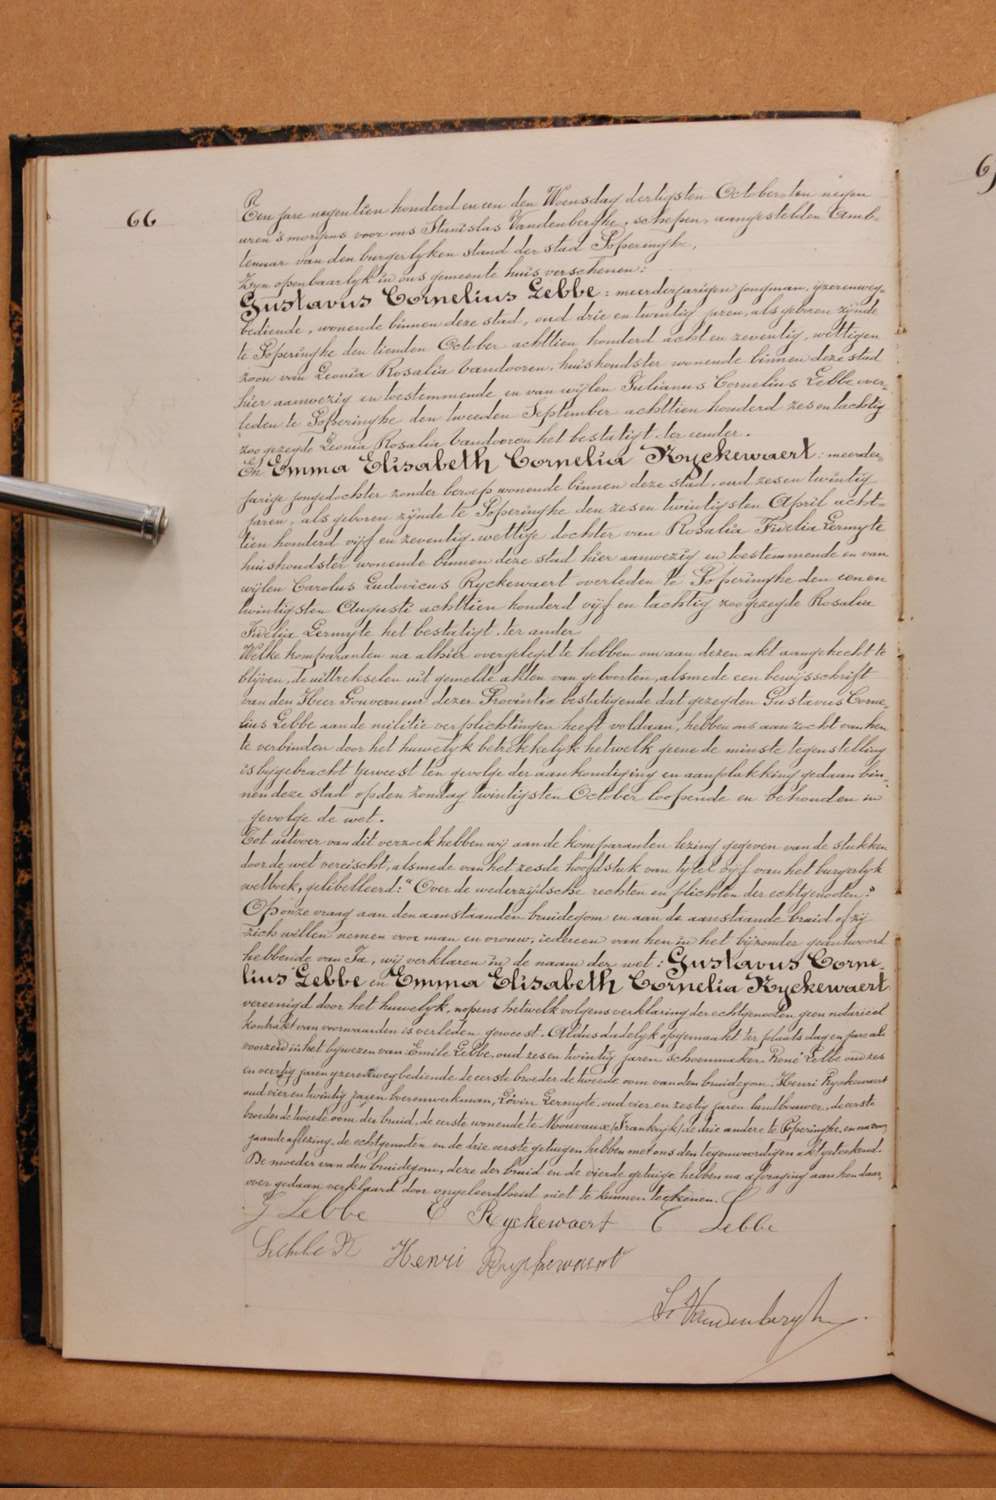 66
Ten jare negentien honderd en een den Woensdag dertigsten October ten negen
uren 's morgens voor ons Stanislas Vandenberghe, schepen, aangestelden Amb-
tenaar van den burgerlyken stand der stad Poperinghe,
Zyn openbaarlyk in ons gemeente huis verschenen:
Gustavus Cornelius Lebbe: meerderjarigen jongman, yzerenweg-
bediende, wonende binnen deze stad, oud drie en twintig jaren, als geboren zijnde
te Poperinghe den tienden October achttien honderd acht en zeventig, wettigen
zoon van Leonia Rosalia Vandooren, huishoudster wonende binnen deze stad
hier aanwezig en toestemmende en van wijlen Julianus Cornelius Lebbe over-
leden te Poperinghe den tweeden September achttien honderd zes en tachtig
zoo gezegde Leonia Rosalia Vandooren het bestatigt. ter eender.
En Emma Elisabeth Cornelia Ryckewaert: meerder-
jarige jongedochter zonder beroep wonende binnen deze stad, oud zes en twintig
jaren, als geboren zijnde te Poperinghe den zes en twintigsten April acht-
tien honderd vijf en zeventig, wettige dochter van Rosalia Fidelia Lermyte
huishoudster wonende binnen deze stad hier aanwezig en toestemmende en van
wijlen Carolus Ludovicus Ryckewaert overleden te Poperinghe den eenen
twintigsten Augusti achttien honderd vijf en tachtig zoo gezegde Rosalia
Fidelia Lermyte het bestatigt. ter ander
Welke komparanten na alhier overgelegd te hebben om aan dezen akt aangehecht te
blijven, de uittrekselen uit gemelde akten van geboorten, alsmede een bewijsschrift
van den Heer Gouverneur dezer Provintie bestatigende dat gezegden Gustavus Corne-
lius Lebbe aan de militie verplichtingen heeft voldaan, hebben ons aanzocht van hen
te verbinden door het huwelyk betrekkelyk hetwelk geene de minste tegenstelling
is bygebracht geweest ten gevolge der aankondiging en aanplakking gedaan bin-
nen deze stad op den Zondag twintigsten October loopende en behouden in
gevolge de wet.
Tot uitvoer van dit verzoek hebben wij aan de komparanten lezing gegeven van de stukken
door de wet vereischt, alsmede van het zesde hoofdstuk van tytel vijf van het burgerlyk
wetboek, gelibelleerd: "Over de wederzijdsche rechten en plichten der echtgenooten."
Op onze vraag aan den aanstaanden bruidegom en aan de aanstaande bruid of zij
zich willen nemen voor man en vrouw, iedereen van hen in het bijzonder geantwoord
hebbende van Ja, wij verklaren in de naam der wet: Gustavus Corne-
lius Lebbe en Emma Elisabeth Cornelia Ryckewaert
vereenigd door het huwelyk, nopens hetwelk volgens verklaring der echtgenooten geen notarieel
kontrakt van voorwaarden is verleden geweest. Aldus dadelyk opgemaakt ter plaats dag en jare als
voorzeid in het bijwezen van Emile Lebbe, oud zes en twintig jaren schoenmaker, René Lebbe oud zes
en veertig jaren yzerenwegbediende de eerste broeder de tweede oom van den bruidegom, Henri Ryckewaert
oud vier en twintig jaren boerenwerkman, Lovin Lermyte, oud vier en zestig jaren landbouwer, de eerste
broeder de tweede oom der bruid, de eerste wonende te Mouvaux (Frankrijk) de drie andere te Poperinghe, en na voor
gaande aflezing, de echtgenooten en de drie eerste getuigen hebben met ons den tegenwoordigen akt geteekend.
De moeder van den bruidegom, deze der bruid en de vierde getuige hebben na afvraging aan hen daar
over gedaan verklaard door ongeleerdheid niet te kunnen teekenen.
G Lebbe E Ryckewaert E Lebbe
Lebbe R Henri Ryckewaert
St Vandenberghe